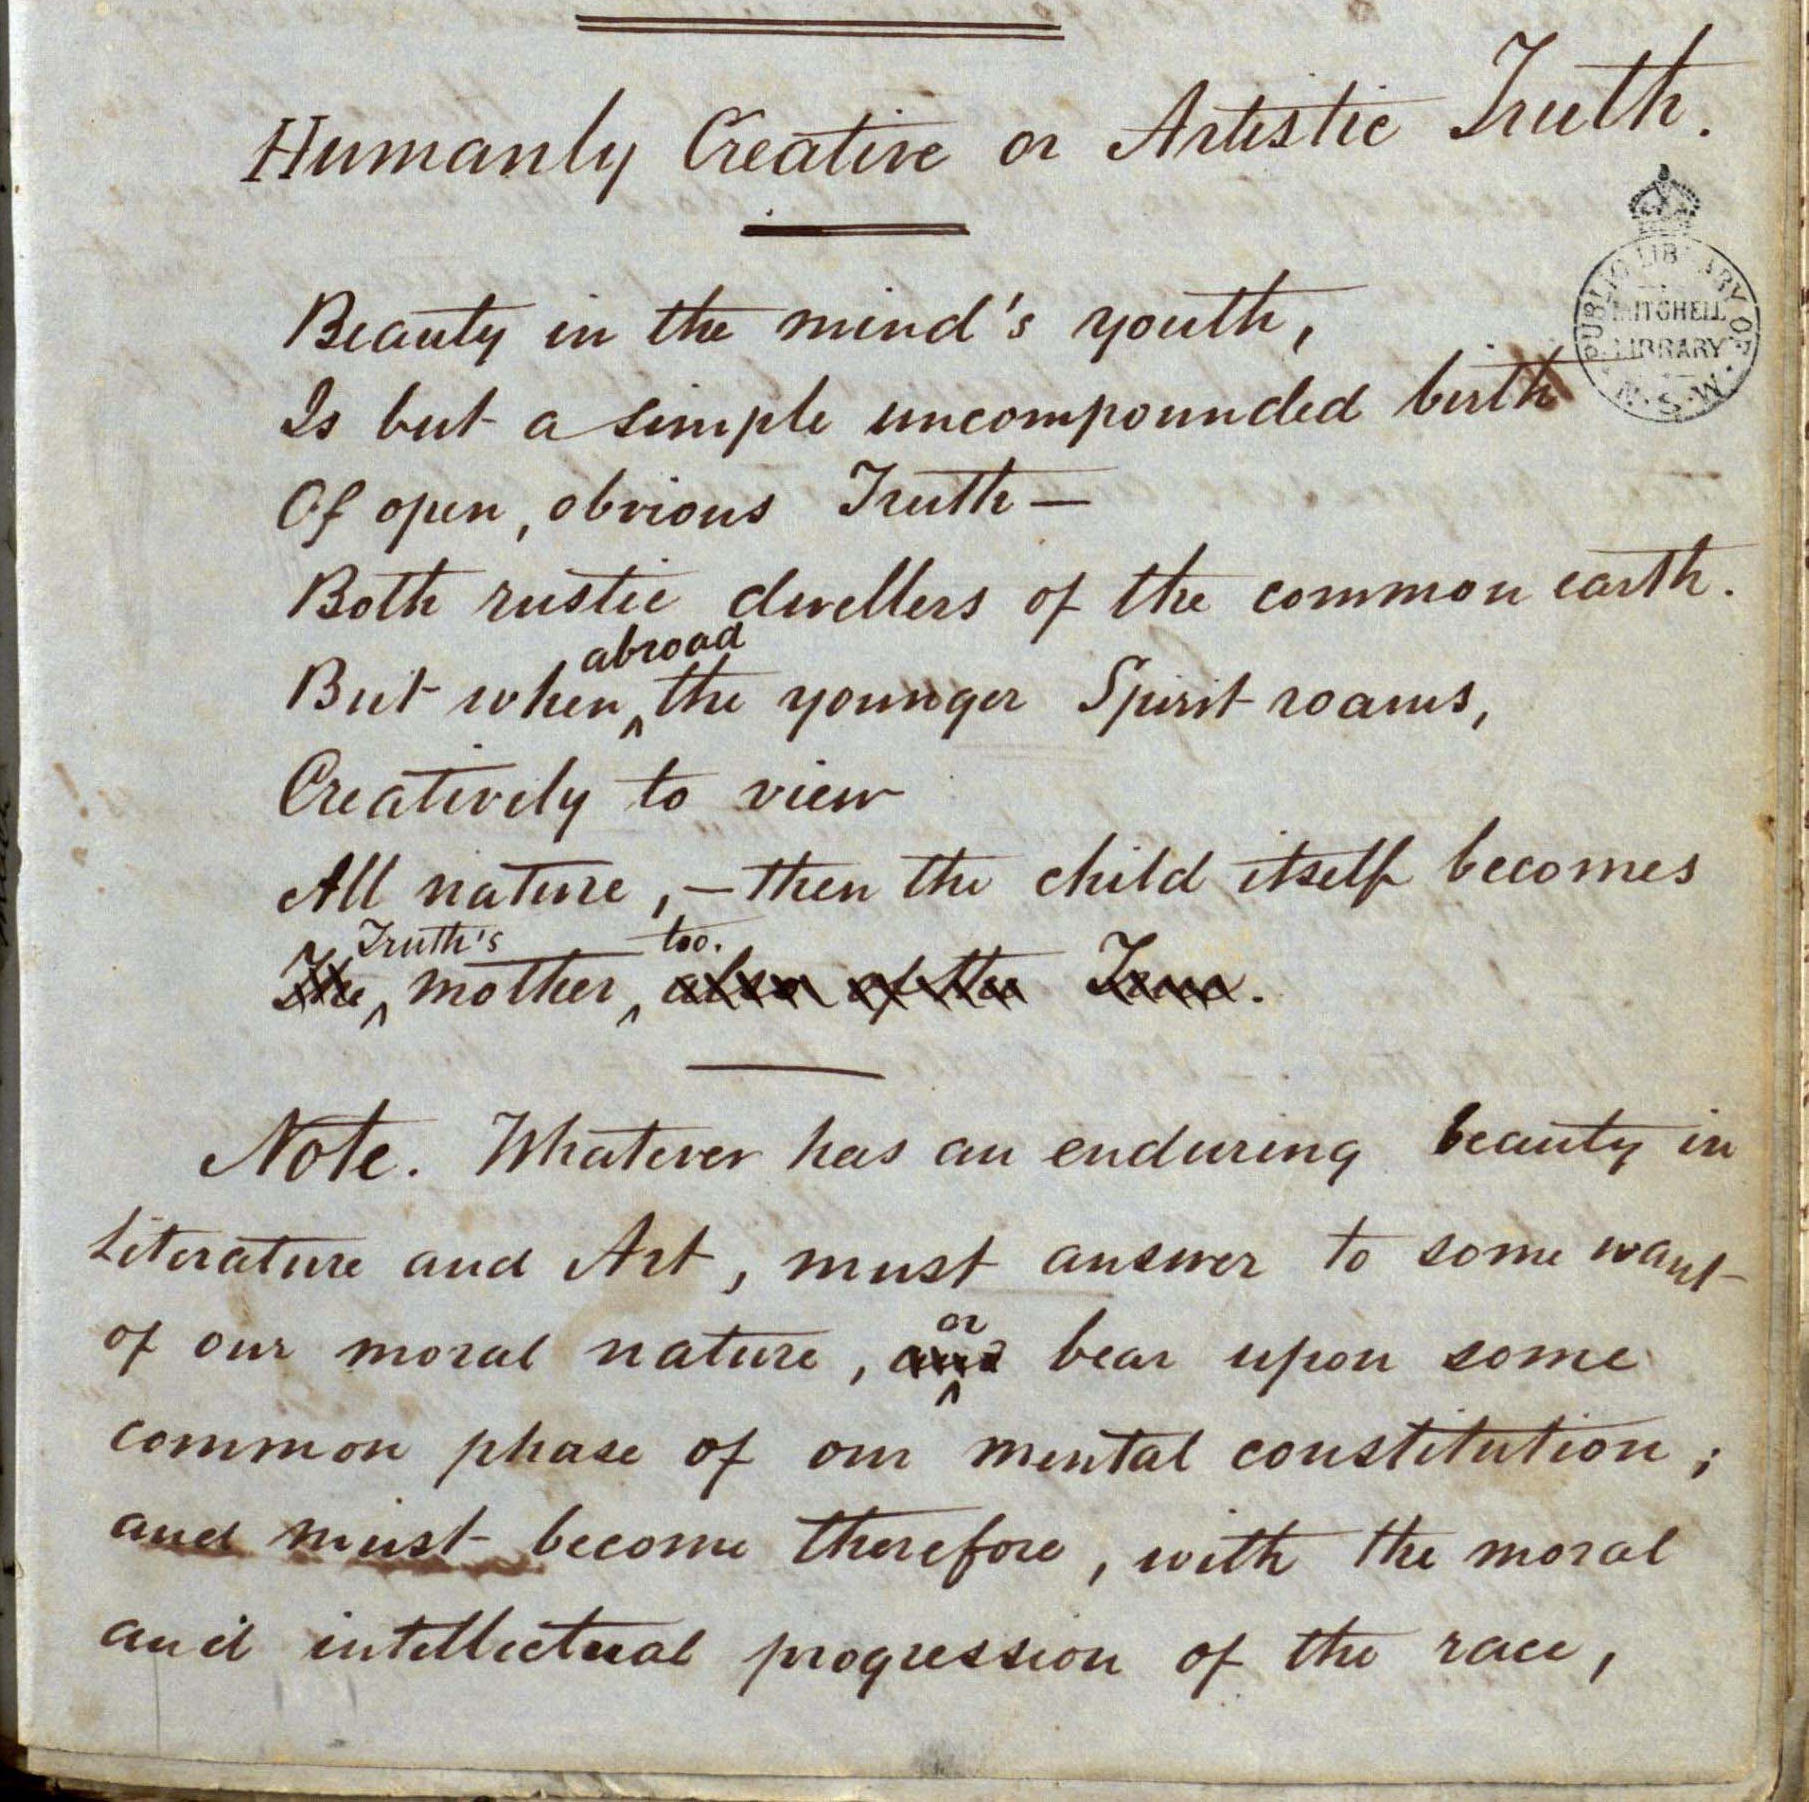 Humanly Creative or Artistic Truth.
PUBLIC LIBRARY OF N.S.W.
MITCHELL
LIBRARY
Beauty in the mind's youth,
Is but a simple uncompounded birth
Of open, obvious Truth —
Both rustic dwellers of the common earth.
abroad
But when ^ the younger Spirit roams,
Creatively to view
All nature, — then the child itself becomes
Truth's too.
The ^ mother, ^ also of the True.
Note. Whatever has an enduring beauty in
Literature and Art, must answer to some want
or
of our moral nature, and ^ bear upon some
common phase of our mental constitution;
and must become therefore, with the moral
and intellectual progression of the race,